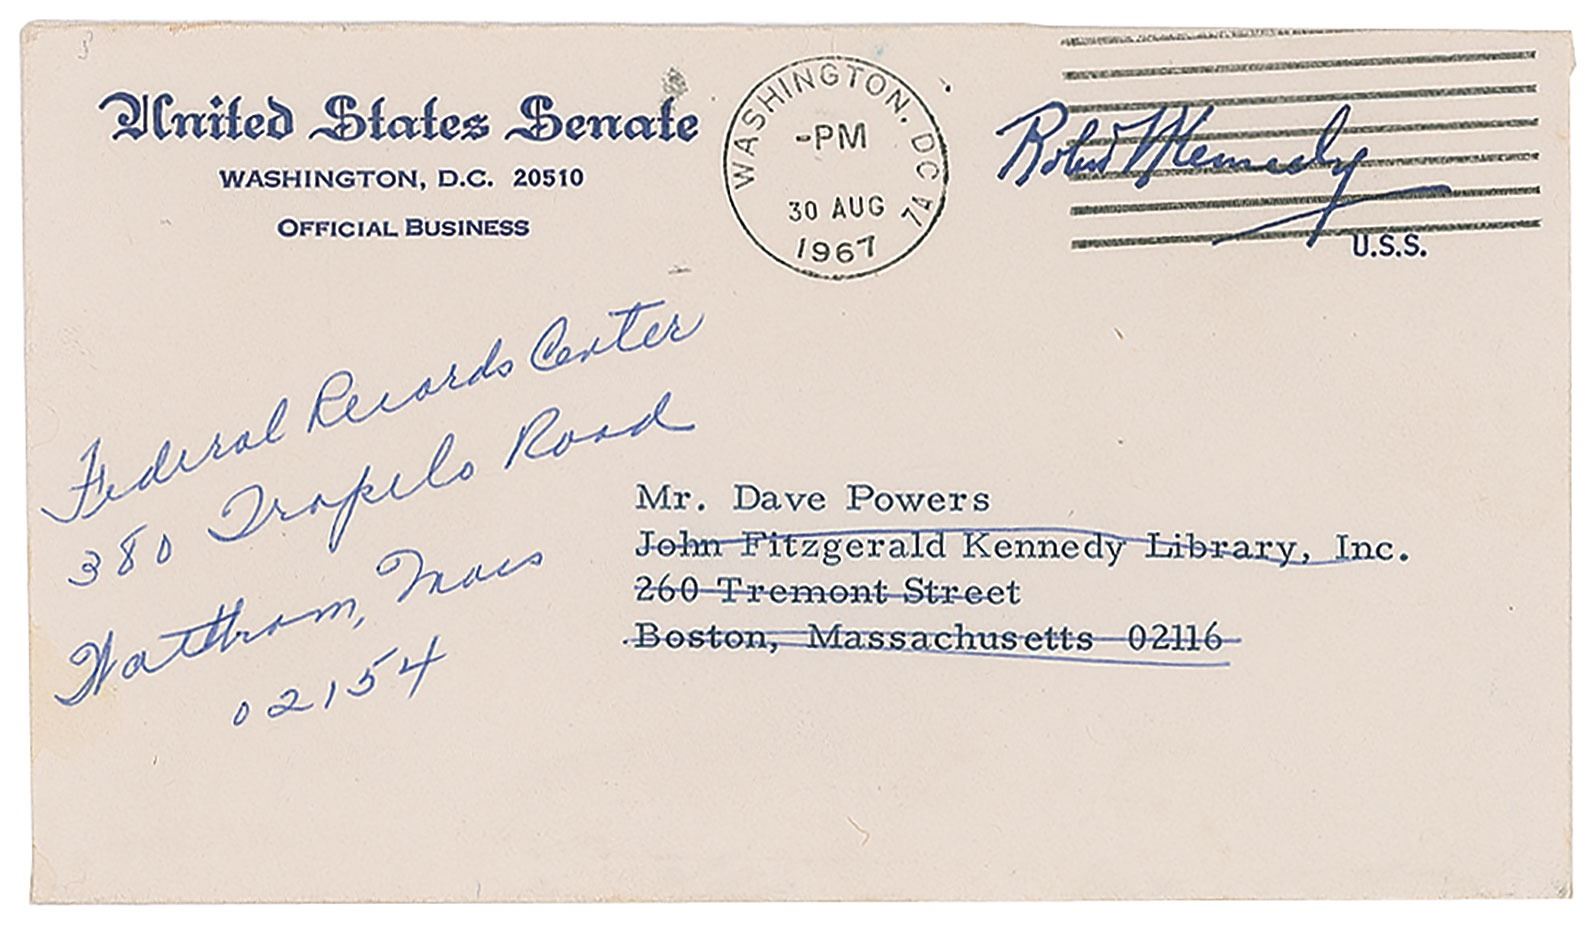 United States Senate
WASHINGTON, D.C. 20510
OFFICIAL BUSINESS
WASHINGTON, DC
-PM
30 AUG
1967
7A
Robert F Kennedy
U.S.S.
Federal Records Center
380 Trapelo Road
Waltham, Mass
02154
Mr. Dave Powers
John Fitzgerald Kennedy Library, Inc.
260 Tremont Street
Boston, Massachusetts 02116